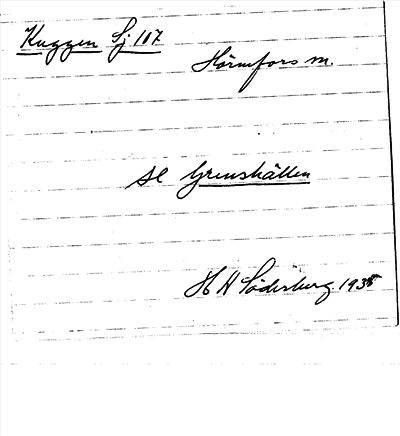 Kuggen Sj 117
Hörnefors m.
se Grenshällen
H H Söderburg 1935